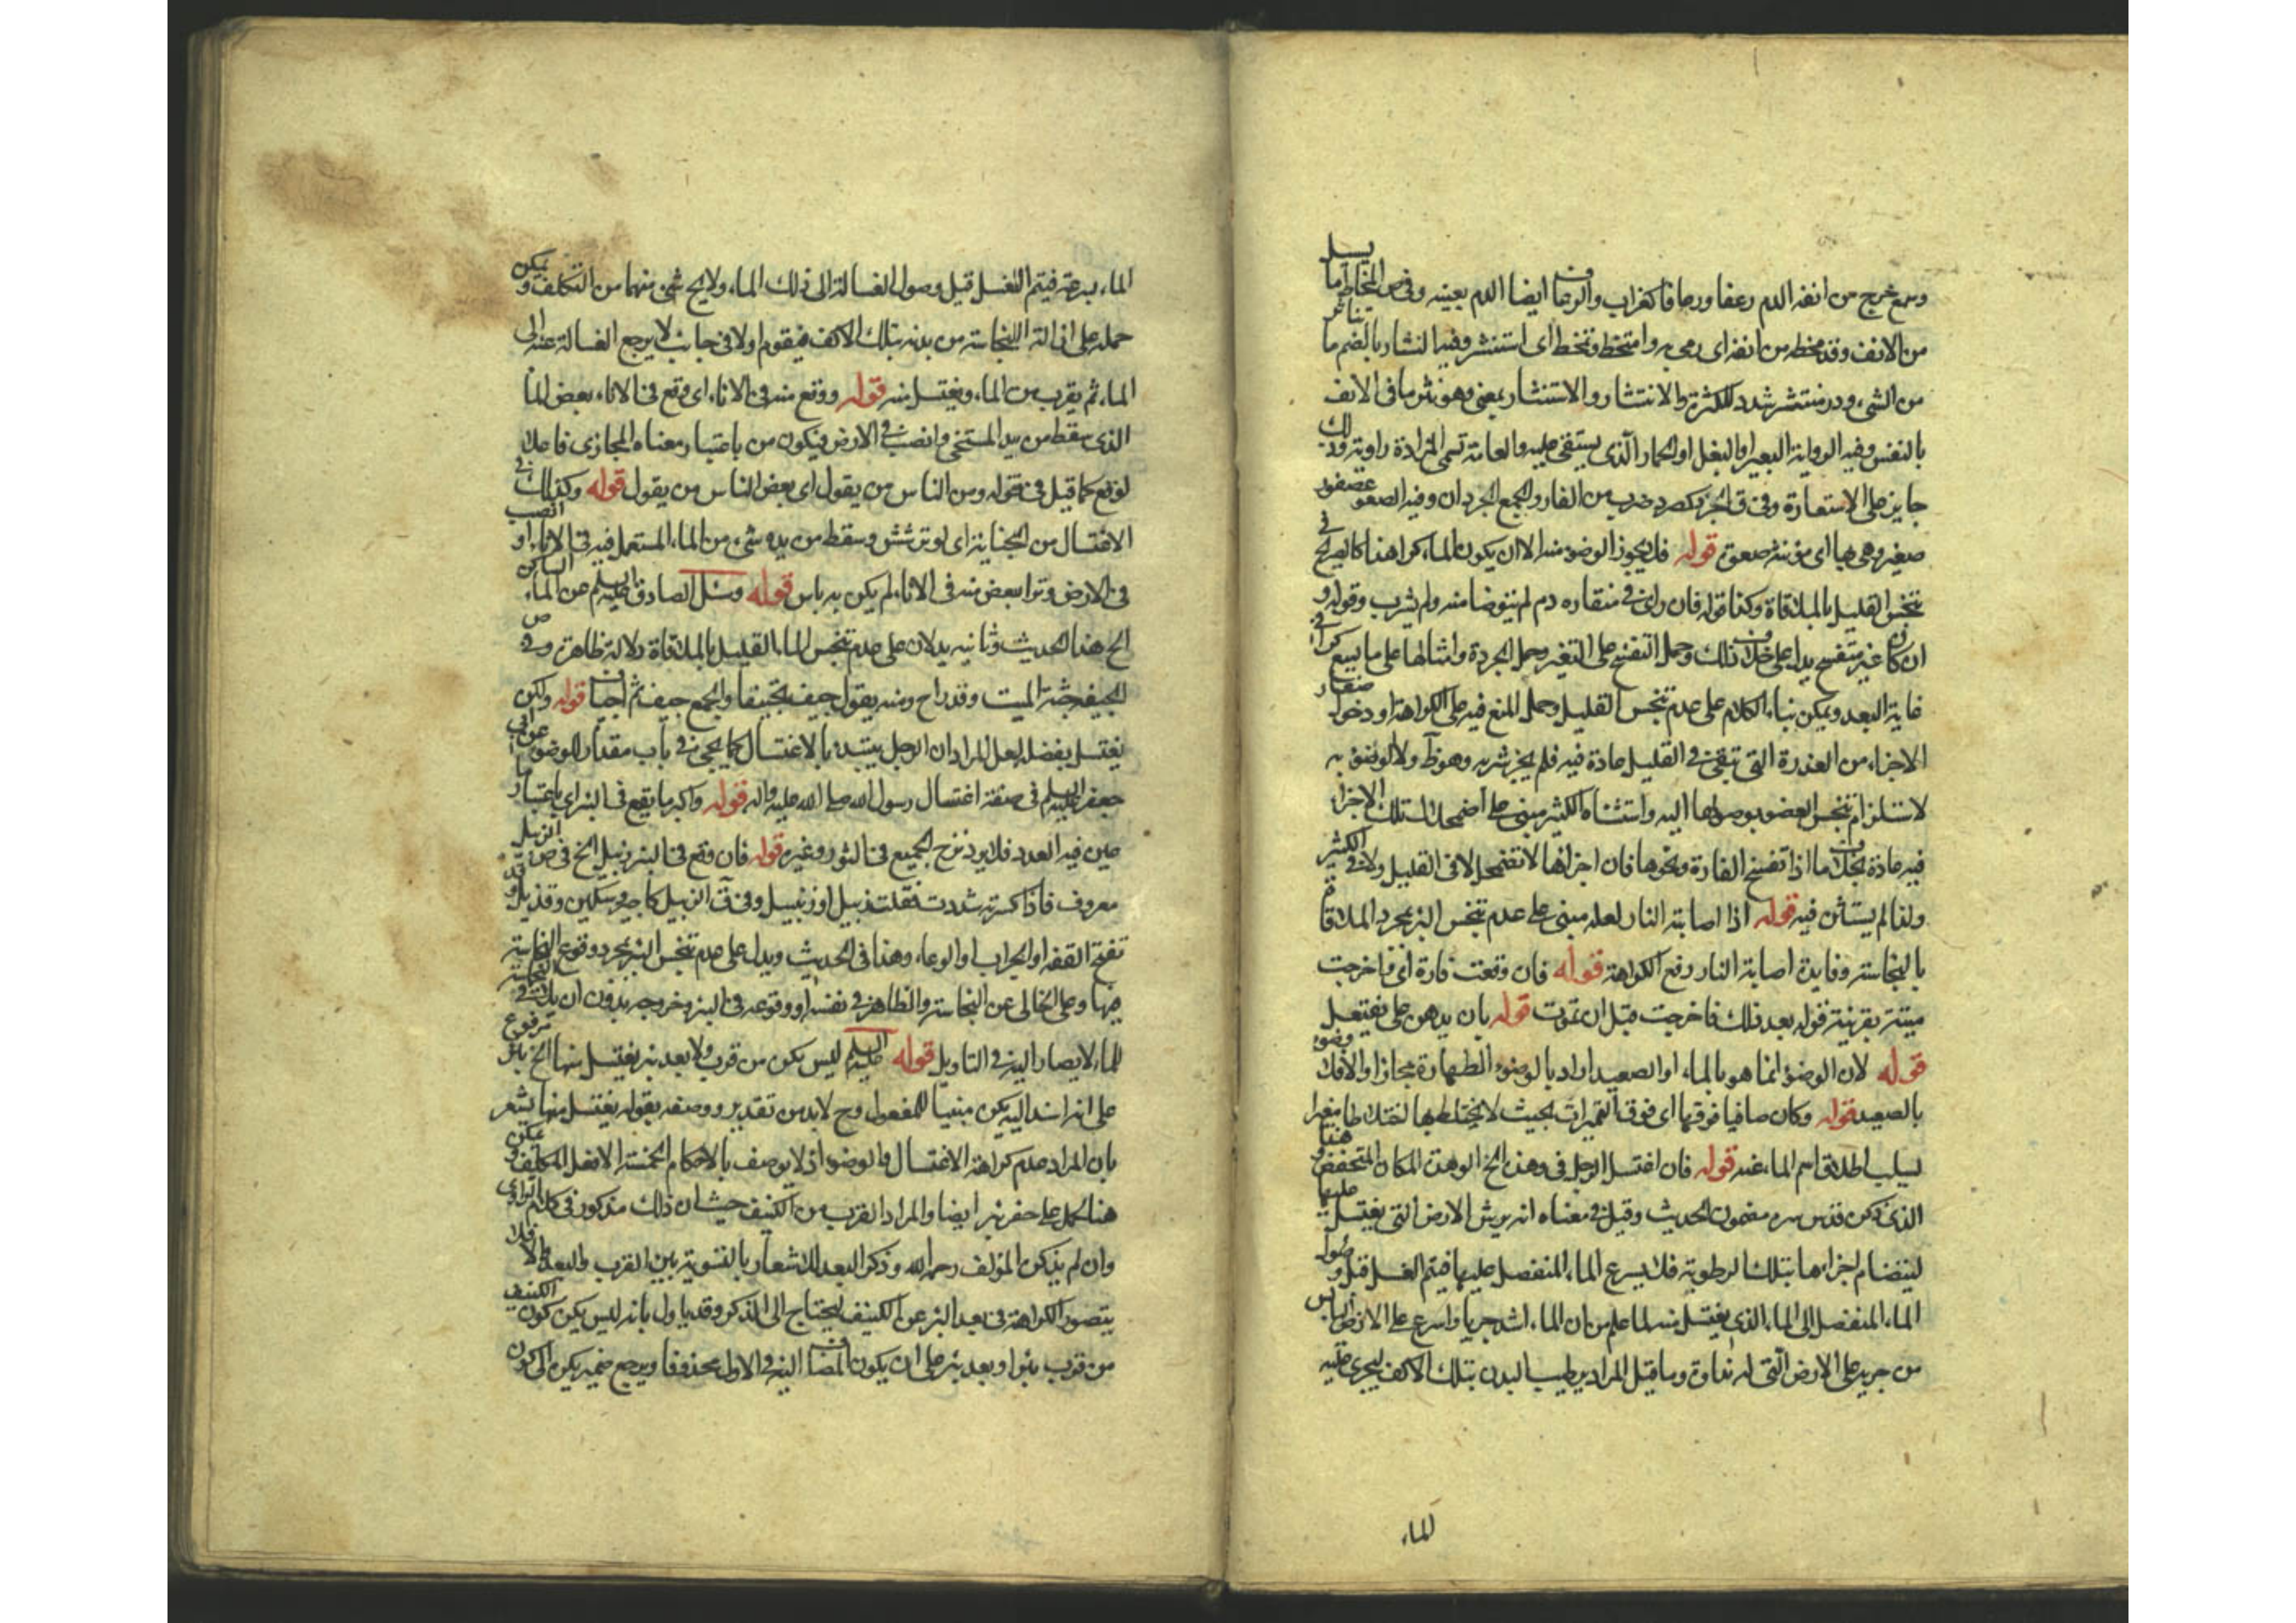 وسمع خرج من انفه الدم رعفا ورعافا كغراب والرعاف ايضا الدم بعينه وفى ص المخاط ما يسيل
من الانف وقد مخطه من انفه اى رمى به وامتخط وتمخط اى استنثر وفيه النثار بالضم ما يتناثر
من الشىء ودر منتثر شدد للكثرة والانتثار والاستنثار بمعنى وهو نثر ما فى الانف
بالنفس وفيه الرواية البعير او البغل او الحمار الذى يستقى عليه والعامة تسمى المزادة راوية وذلك
جايز على الاستعارة وفى ق الجرذ كصرد ضرب من الفار والجمع الجرذان وفيه الصعو عصفور
صغير وهى بهاء اى مؤنثه صعوة قوله فلا يجوز الوضوء منه الا ان يكون الماء كرا هذا كالصريح فى
تنجس القليل بالملاقاة وكذا قوله فان راى فى منقاره دم لم يتوضا منه ولم يشرب وقوله و
ان كان غير متفسخ يدل على خلاف ذلك وحمل التفسخ على التغير وحمل الجرة وامثالها على ما يسع كرا فى
غاية البعد ويمكن بناء الكلام على عدم تنجس القليل وحمل المنع فيه على الكراهة او دخول صغار
الاجزاء من العذرة التى تبقى فى القليل عادة فيه فلم يجز شربه وهو ظ ولا الوضوء به
لاستلزام تنجس العضو بوصولها اليه واستثناء الكثير مبنى على اضمحلال تلك الاجزاء
فيه عادة بخلاف ما اذا تفسخ الفارة ونحوها فان اجزائها لا تضمحل لا فى القليل ولا فى الكثير
ولذا لم يستثن فيه قوله اذا اصابته النار لعله مبنى على عدم تنجس البئر بمجرد الملاقاة
بالنجاسة وفايدة اصابة النار رفع الكراهة قوله فان وقعت فارة اى فاخرجت
ميتة بقرينة قوله بعد ذلك فاخرجت قبل ان تموت قوله بان يدهن على يفتعل
قوله لان الوضوء انما هو بالماء او الصعيد اراد بالوضوء الطهارة مجازا والا فلا وضوء
بالصعيد قوله وكان صافيا فوقها اى فوق التميرات بحيث لا يختلطها لختلاطا مغيرا
ليسلب اطلاق اسم الماء عنه قوله فان اغتسل الرجل فى وهدة الخ الوهدة المكان المنخفض و هذا
الذى ذكره قدس سره مضمون الحديث وقيل فى معناه انه يرش الارض التى يغتسل عليها
لينضام اجزاءها بتلك الرطوبة فلا يسرع الماء المنفصل عليها فيتم الغسل قبل وصول
الماء المنفصل الى الماء الذى يغتسل منه لما علم من ان الماء اشد جريا واسرع على الارض اليابس
من جريه على الارض التى له نداوة وما قيل المراد ترطيب البدن بتلك الاكف ليجرى عليه
الماء
الماء بسرعة فيتم الغسل قبل وصول الغسالة الى ذلك الماء ولا يخ شىء منهما من التكلف و يمكن
حمله على ازالة النجاسة من بدنه بتلك الاكف فيقوم اولا فى جانب لا يرجع الغسالة عنه الى
الماء ثم يقرب من الماء ويغتسل منه قوله ووقع منه فى الاناء اى وقع فى الاناء بعض الماء
الذى سقط من يد المستنجى وانصب فى الارض فيكون من باعتبار معناه المجازى فاعلا
لوقع كما قيل فى قوله ومن الناس من يقول اى بعض الناس من يقول قوله وكذلك فى
الاغتسال من الجنابة اى لو ترشش وسقط من يده شىء من الماء المستعمل فيه فى الاناء او انصب
فى الارض وترا بعض منه فى الاناء لم يكن به باس قوله وسئل الصادق عليه السلم عن الماء الساكن
الخ هذا الحديث وثانيه يدلان على عدم تنجس الماء القليل بالملاقاة دلالة ظاهرة وفى ص
الجيفة جثة الميت وقد راح ومنه يقول جيف تجييفا والجمع جيف ثم اجياف قوله ولكن
يغتسل بفضله لعل المراد ان الرجل يبتدئ بالاغتسال كما يجىء فى باب مقدار الوضوء عن ابى
جعفر عليه السلم فى صفة اغتسال رسول الله صلى الله عليه واله قوله واكبر ما يقع فى البئر اى باعتبار ما
عين فيه العدد فلا يرد نزح الجميع فى الثور وغيره قوله فان وقع فى البئر زنبيل الخ فى ص الزبيل
معروف فاذا كسرته شددت فقلت زبيل او زنبيل وفى ق الزبيل كامير وسكين وقنديل وقد
تفتح القفة او الجراب او الوعاء وهذا فى الحديث ويدل على عدم تنجس البئر بمجرد وقوع النجاسة
فيها وحمل الخالى عن النجاسة والطاهر فى نفسه او وقوعه فى البئر وخروجه بدون ان يلاقى النجاسة
الماء لا يصار اليه فى التاويل قوله عليه السلم ليس يكره من قرب ولا بعد بئر يغتسل منها الخ بئر مرفوع
على انه اسند اليه يكره مبنيا للمفعول وح لا بد من تقدير ووصفه بقوله يغتسل منها يشعر
بان المراد عدم كراهة الاغتسال والوضوء اذ لا يوصف بالاحكام الخمسة الا فعل المكلف و يمكن
هنا كمل على حفر بئر ايضا والمراد القرب من الكنيف حيث ان ذلك مذكور فى كلام الراوى
وان لم يذكره المؤلف رحمه الله وذكر البعد للاشعار بالتسوية بين القرب والبعد والا فلا
يتصور الكراهة فى بعد البئر عن الكنيف ليحتاج الى الذكر وقد ياول بانه ليس يكره كون الكنيف
من قرب بئر او بعد بئر على ان يكون المضاف اليه فى الاول محذوفا ويرجع ضمير يكره الى كون